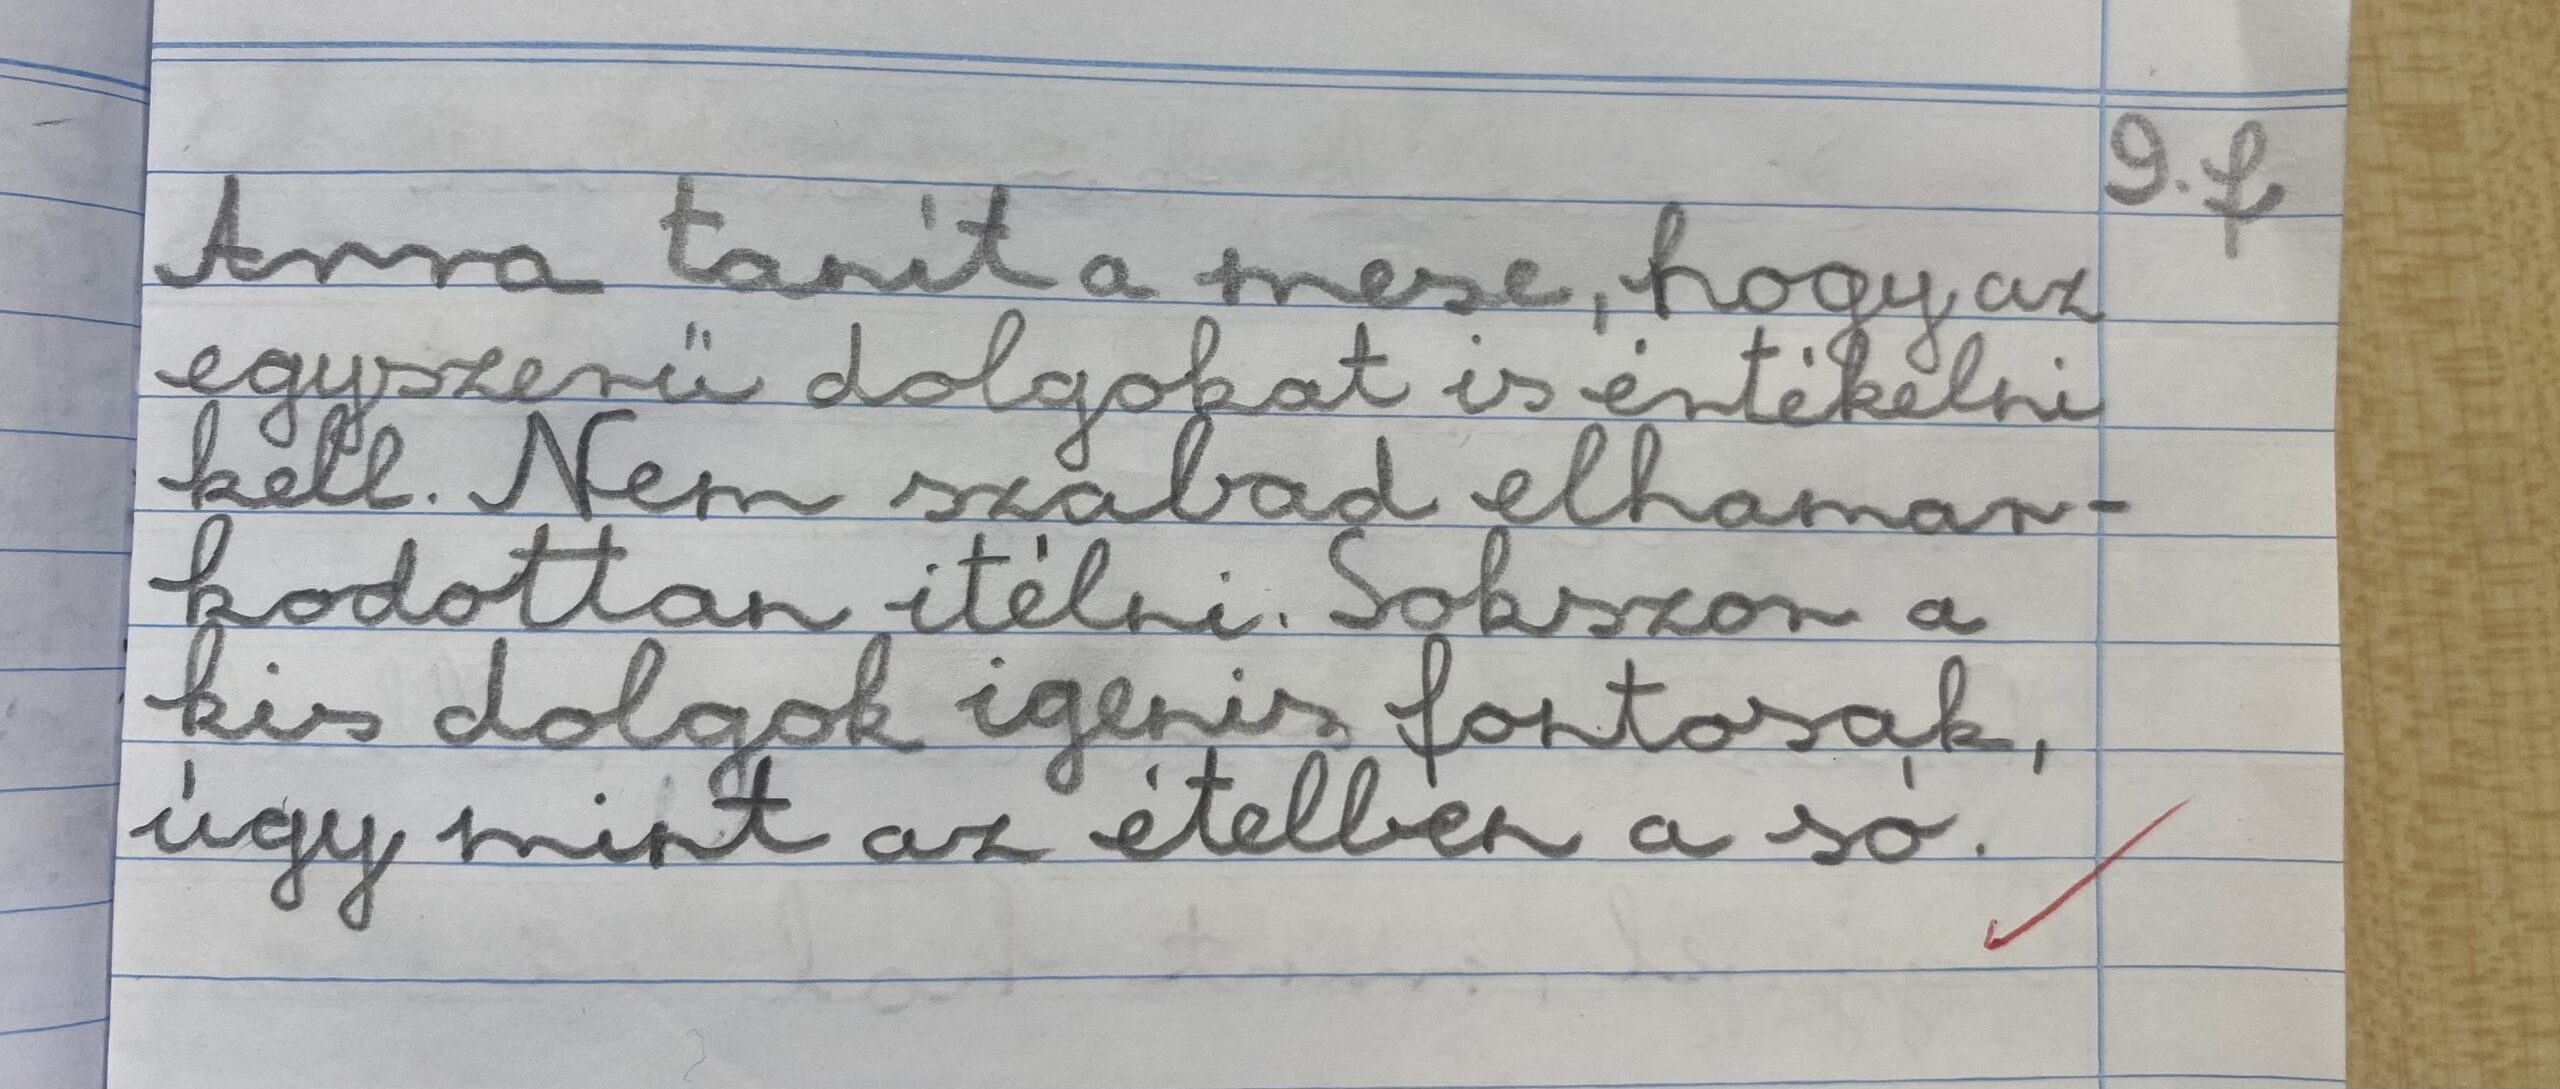 9. f
Arra tanít a mese, hogy az
egyszerű dolgokat is értékelni
kell. Nem szabad elhamar-
kodottan itélni. Sokszor a
kis dolgok igenis fontosak,
úgy mint az ételben a só.